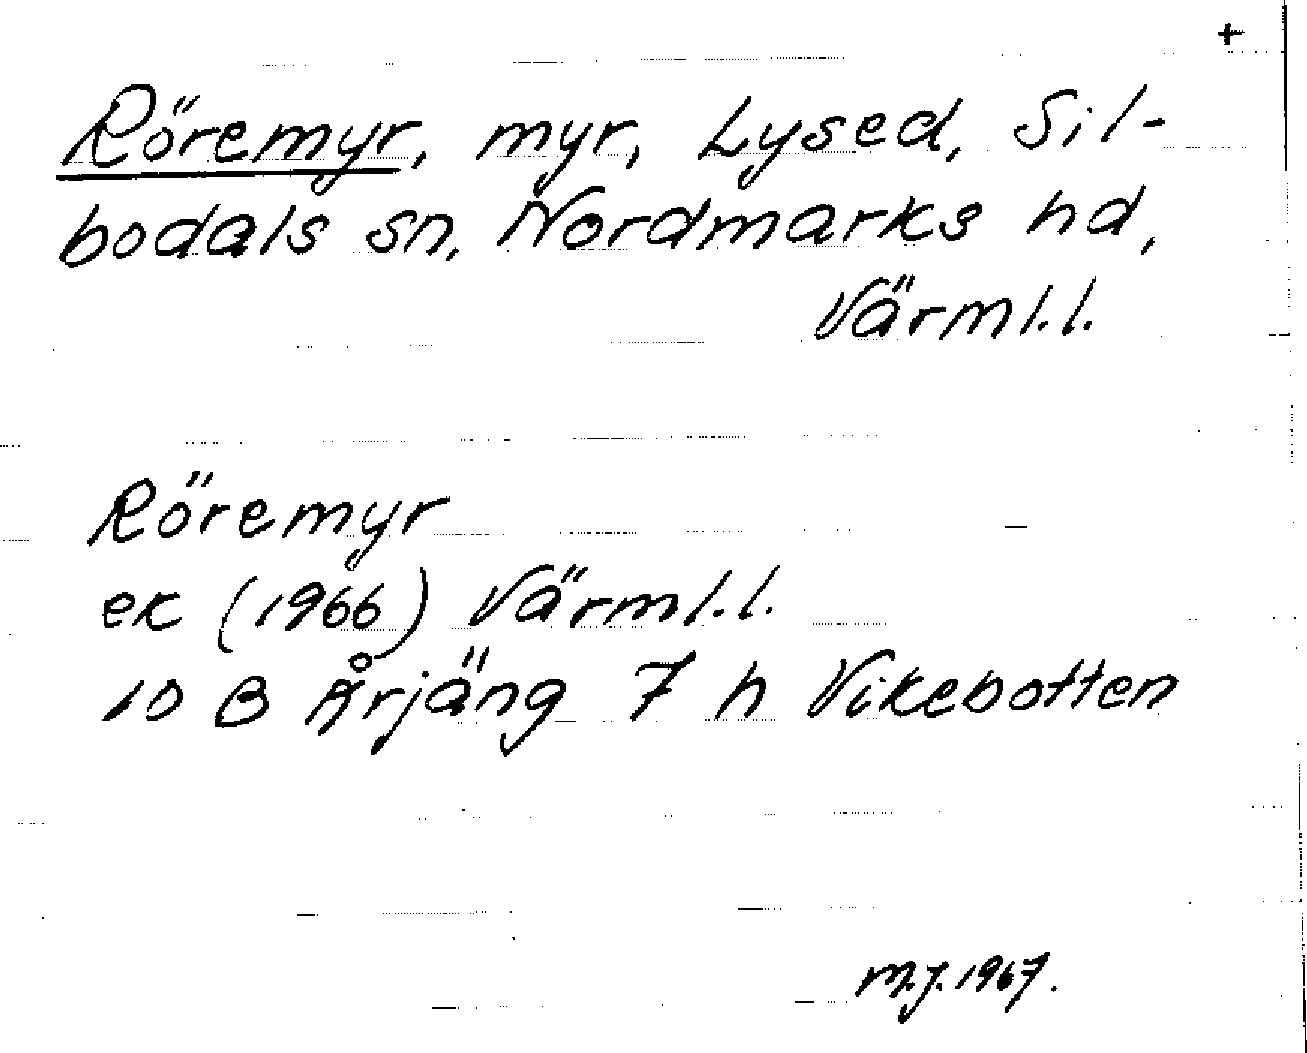 +
Röremyr, myr, Lysed, Sil-
bodals sn, Nordmarks hd,
Värml.l.
Röremyr
ek (1966) Värml.l.
10 B Årjäng 7 h Vikebotten
M.J. 1967.